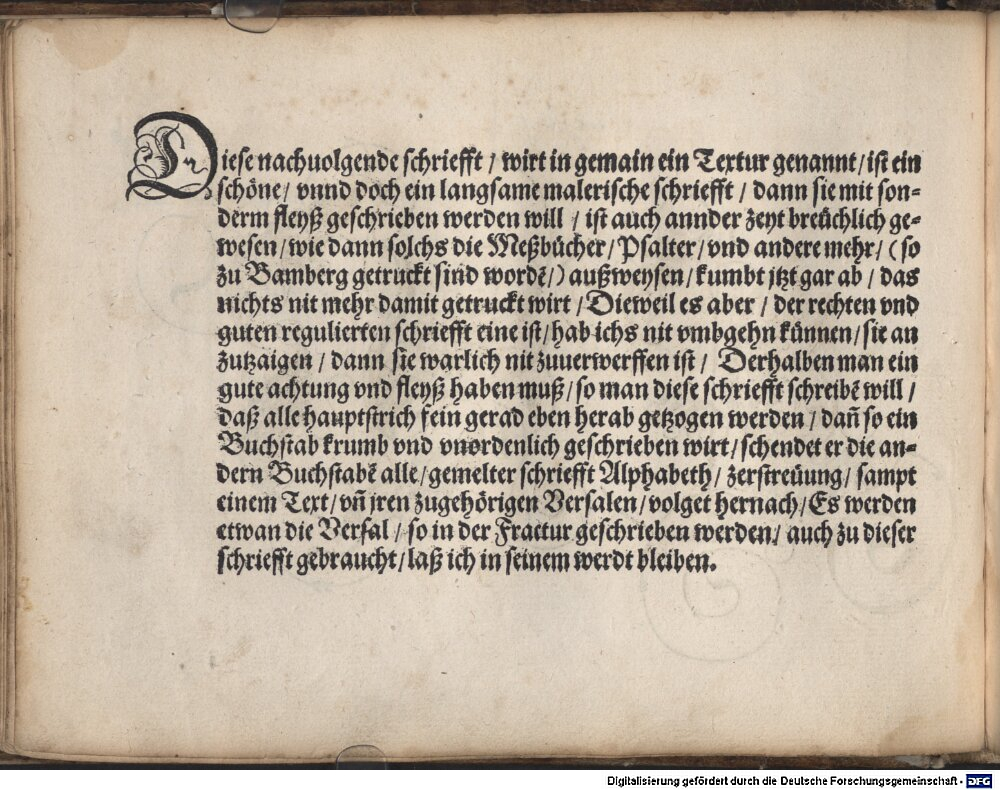 Diese nachuolgende schriefft / wirt in gemain ein Textur genannt / ist ein
schöne / vnnd doch ein langsame malerische schriefft / dann sie mit son=
derm fleyß geschrieben werden will / ist auch annder zeyt breüchlich ge=
wesen / wie dann solchs die Meßbücher / Psalter / vnd andere mehr / (so
zu Bamberg getruckt sind wordē /) außweysen / kumbt jtzt gar ab / das
nichts nit mehr damit getruckt wirt / Dieweil es aber / der rechten vnd
guten regulierten schriefft eine ist / hab ichs nit vmbgehn künnen / sie an
zutzaigen / dann sie warlich nit zuuerwerffen ist / Derhalben man ein
gute achtung vnd fleyß haben muß / so man diese schriefft schreibē will /
daß alle hauptstrich fein gerad eben herab getzogen werden / dañ so ein
Buchstab krumb vnd vnordenlich geschrieben wirt / schendet er die an=
dern Buchstabē alle / gemelter schriefft Alphabeth / zerstreüung / sampt
einem Text / vñ jren zugehörigen Versalen / volget hernach / Es werden
etwan die Versal / so in der Fractur geschrieben werden / auch zu dieser
schriefft gebraucht / laß ich in seinem werdt bleiben.
Digitalisierung gefördert durch die Deutsche Forschungsgemeinschaft - DFG